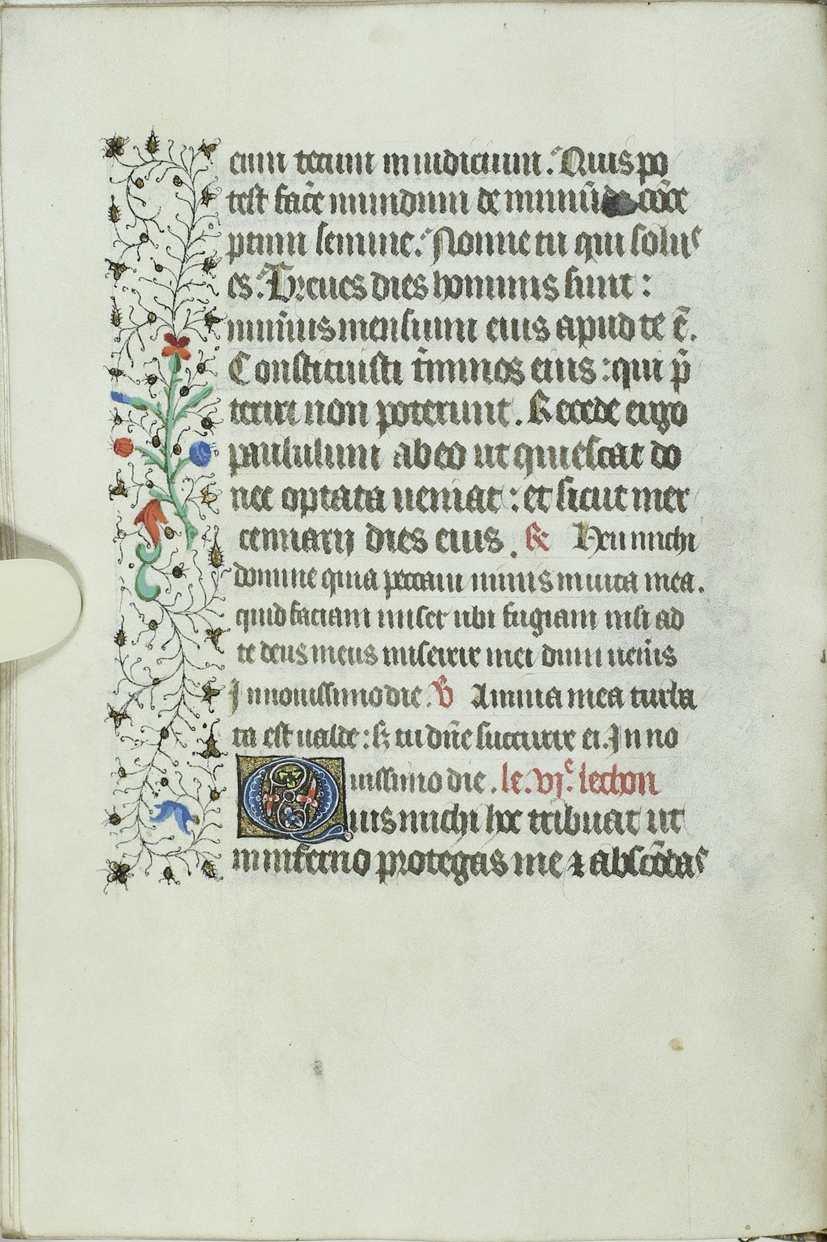 cum tecum in iudicium. Quis po
test fac̄e mundum de mund̄ de cōce
ptum semine. Nonne tu qui solus
es. Breues dies hominis sunt :
numūs mensium eius apud te ē.
Constituisti t̄minos eius : qui p̄
teriri non poterunt. Recede ergo
paululum ab eo ut quiescat do
nec optata ueniat : et sicut mer
cennarij dies eius. ℟ Heu michi
domine quia peccaui nimis in uita mea.
quid faciam miser ubi fugiam nisi ad
te deus meus miserere mei dum uen̄is
In nouissimo die. ℣ Anima mea turba
ta est ualde : s; tu dn̄e succurre ei. In no
uissimo die. le. vjᵉ. lechon
Quis michi hoc tribuat ut
in inferno protegas me ⁊ abscōdas